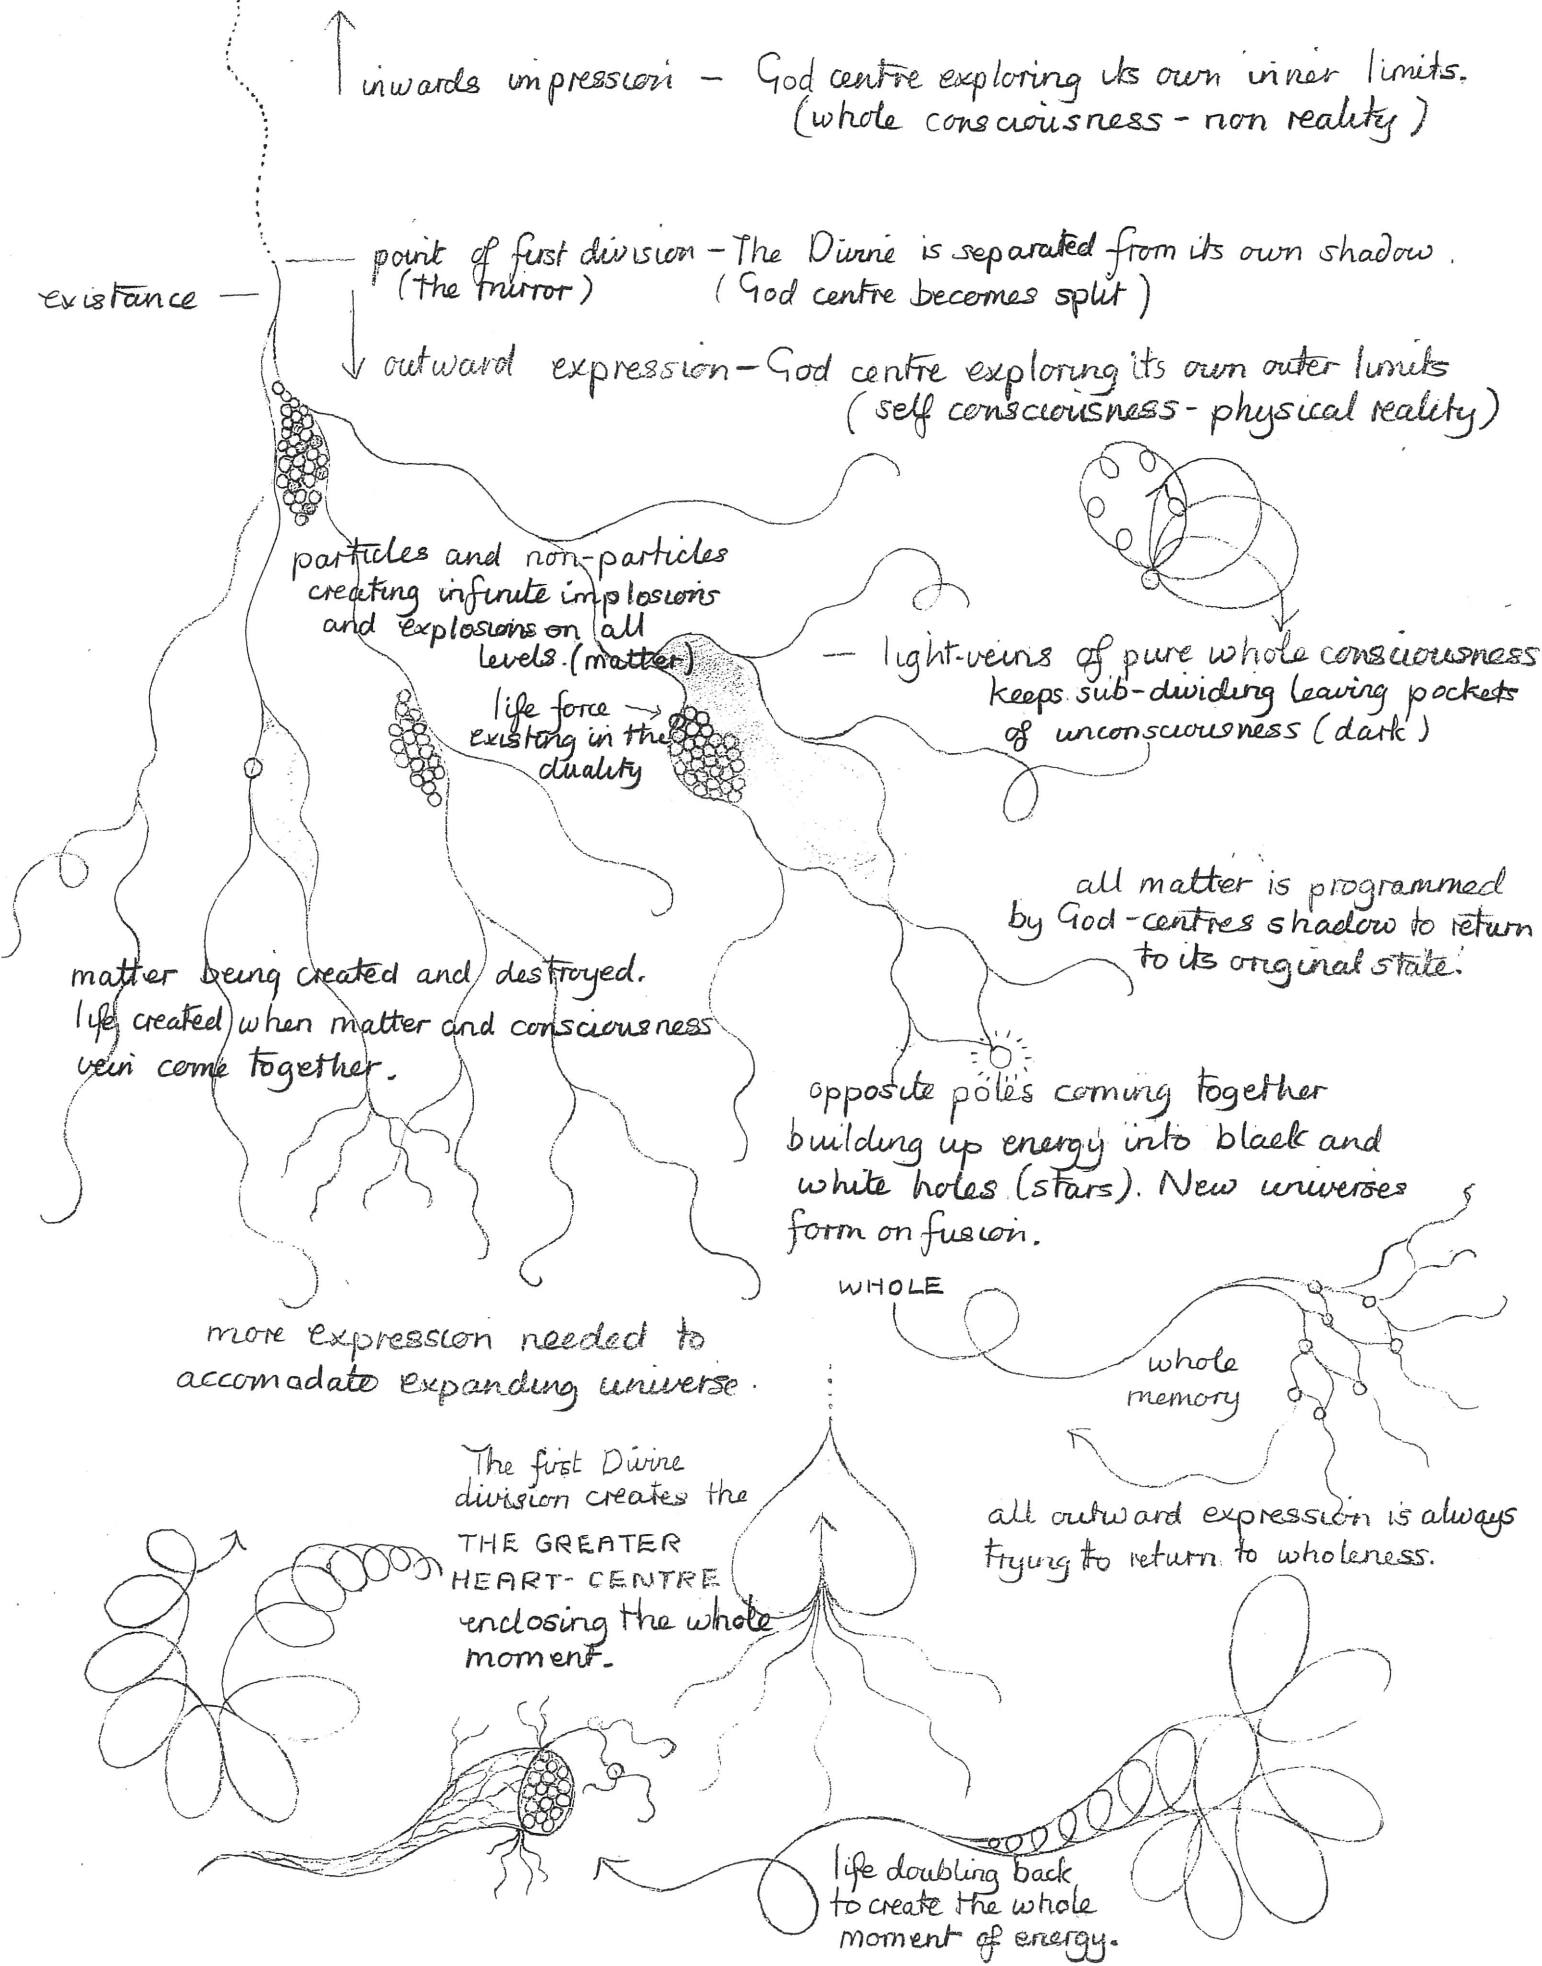 inwards impression – God centre exploring its own inner limits.
(whole consciousness - non reality)
point of first division – The Divine is separated from its own shadow.
(the mirror) (God centre becomes split)
existance
outward expression – God centre exploring its own outer limits
(self consciousness - physical reality)
particles and non-particles
creating infinite implosions
and explosions on all
levels. (matter)
life force
existing in the
duality
– light-veins of pure whole consciousness
keeps sub-dividing leaving pockets
of unconsciousness (dark)
all matter is programmed
by God-centres shadow to return
to its original state.
matter being created and destroyed.
life created when matter and consciousness
vein come together.
opposite poles coming together
building up energy into black and
white holes (stars). New universes
form on fusion.
more expression needed to
accomadate expanding universe.
WHOLE
whole
memory
all outward expression is always
trying to return to wholeness.
The first Divine
division creates the
THE GREATER
HEART-CENTRE
enclosing the whole
moment.
life doubling back
to create the whole
moment of energy.